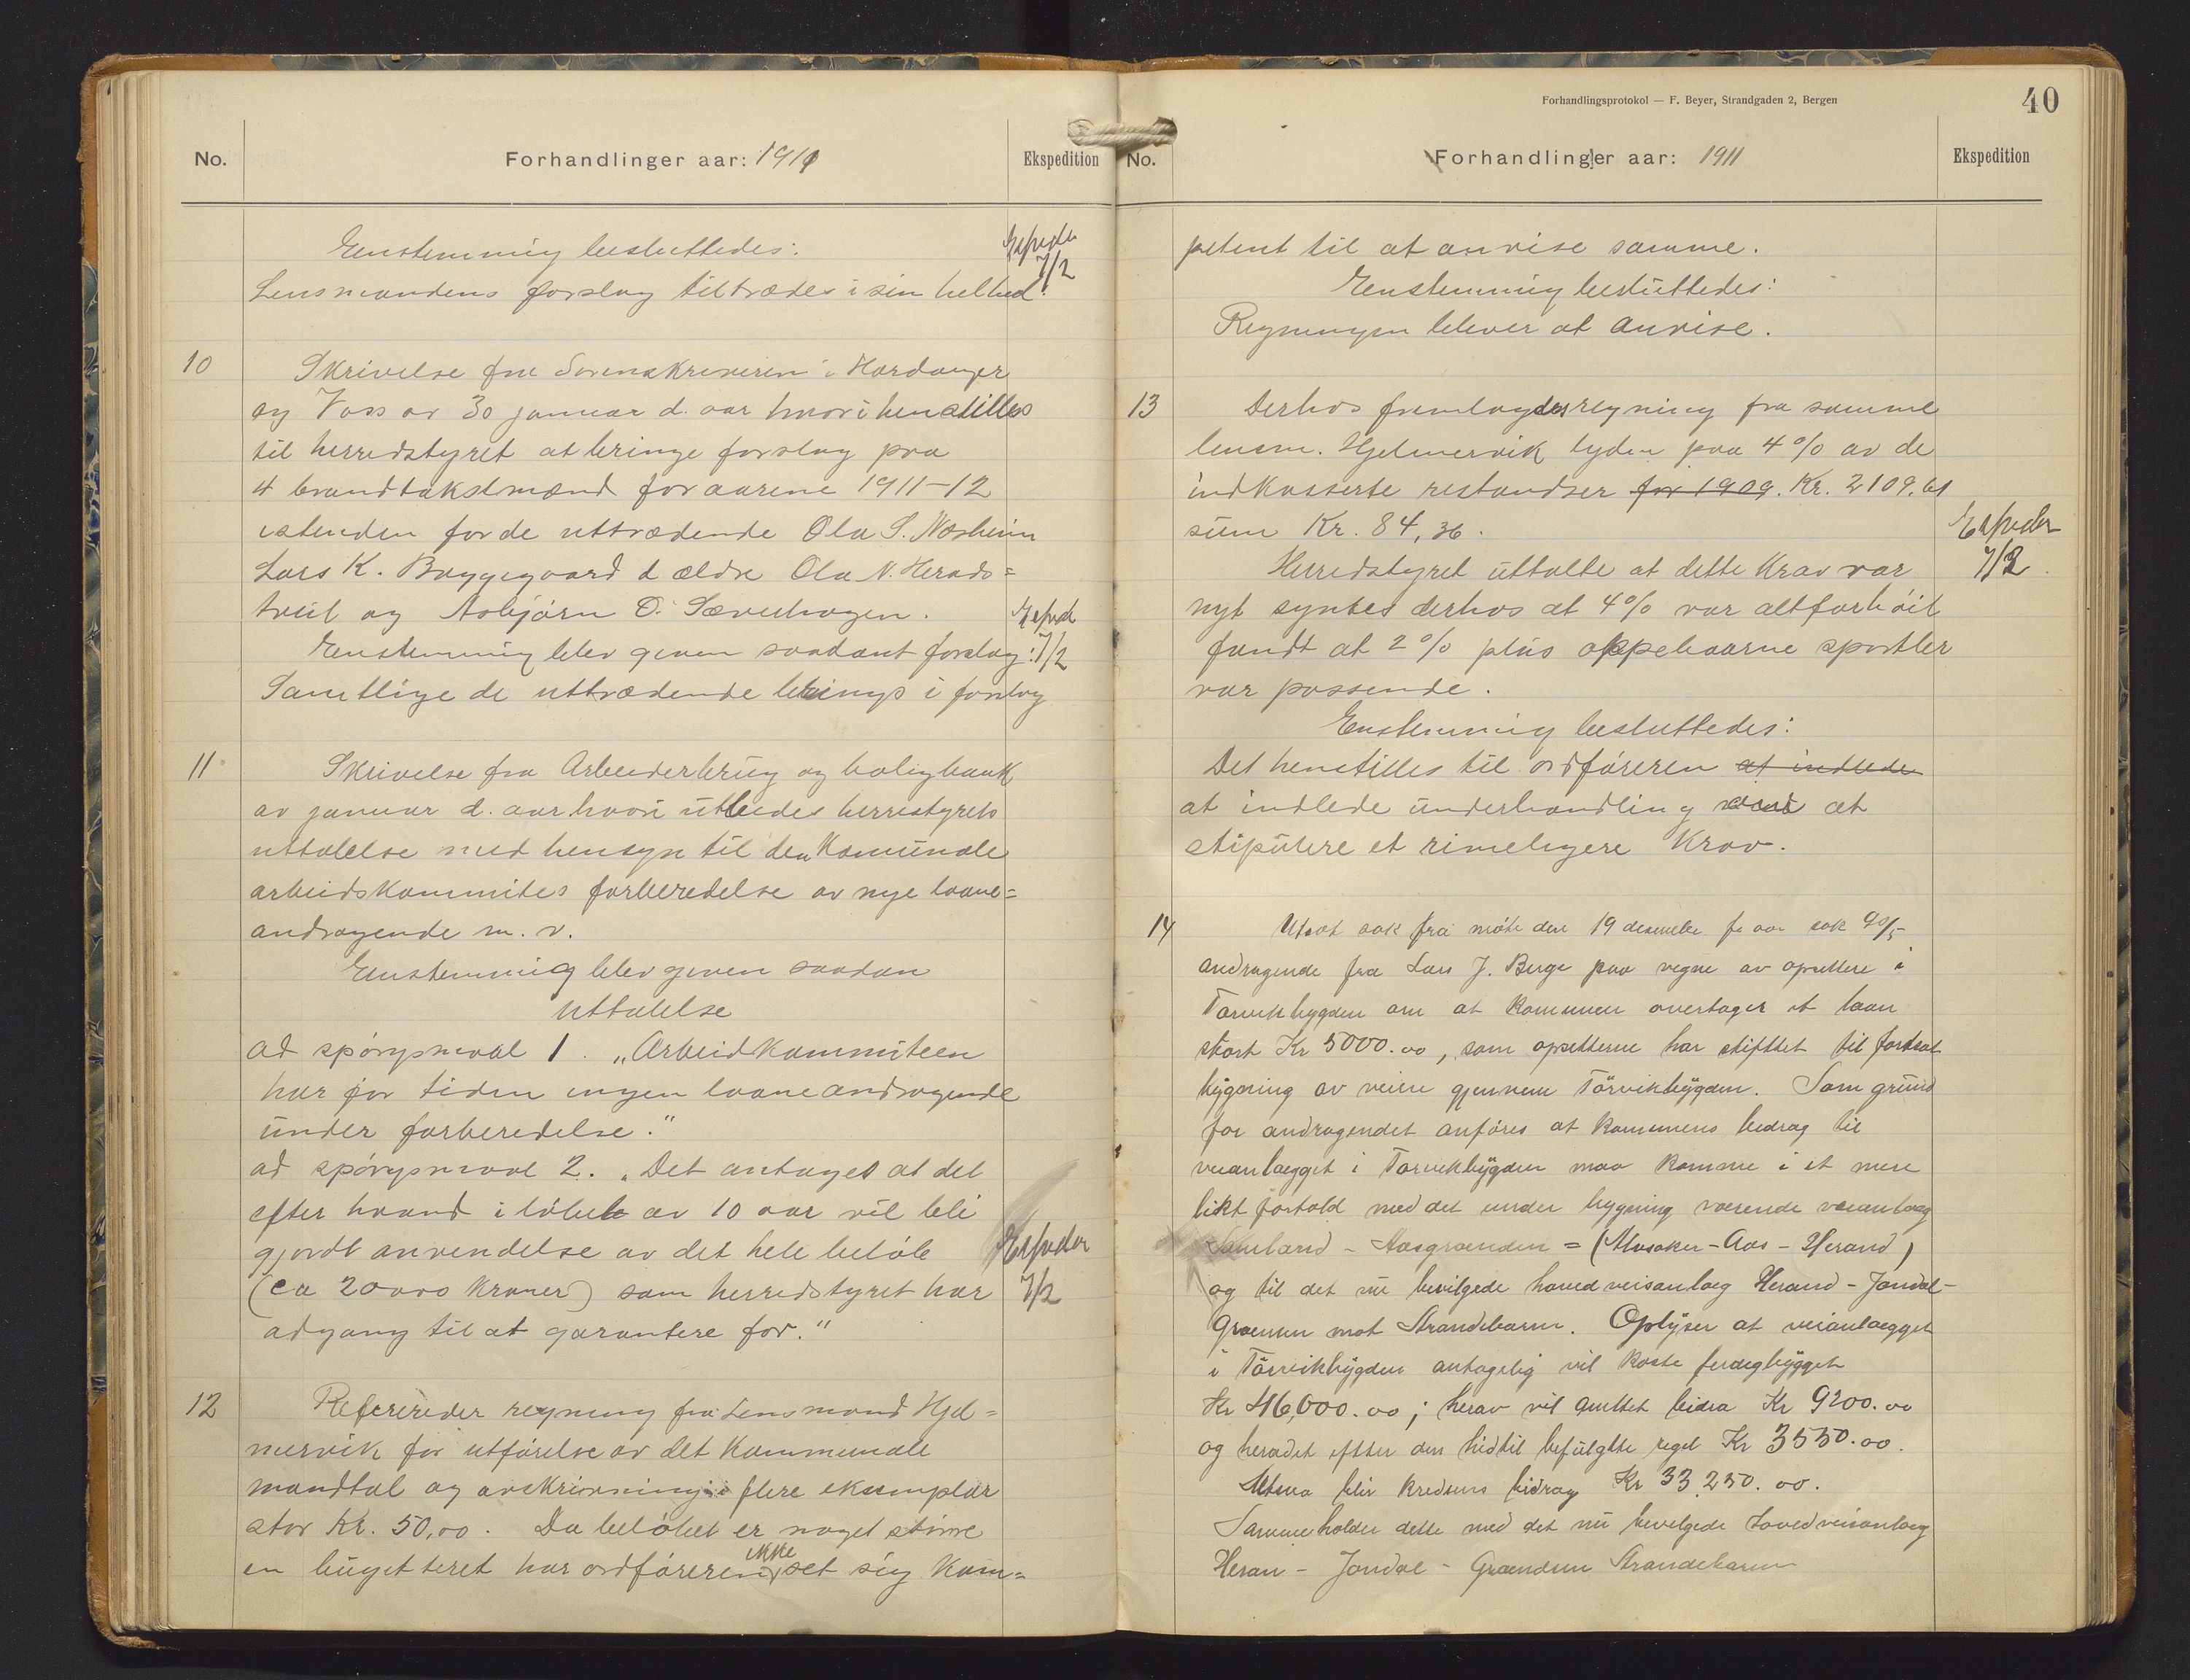 No.
Forhandlinger aar: 1911
Ekspedition
Enstemmig besluttedes:
Lensmandens forslag tiltrædes i sin helhed.
Exspeder
7/2
10
Skrivelse fra Sorenskriveren i Hardanger
og Voss av 30 januar d. aar hvori henstilles
til herredstyret at bringe forslag paa
4 brandtakstmænd for aarene 1911-12
istenden for de uttrædende Ola S. Næsheim
Lars K. Byggegaard d ældre Ola N. Herads=
tveit og Asbjørn O. Sæverhagen.
Enstemmig blev given saadant forslag:
Samtlige de uttrædende bringes i forslag
Exped
7/2
11
Skrivelse fra Arbeiderbrug og boligbank
av januar d. aar hvori utbedes herrestyrets
uttalelse med hensyn til den Komunale
arbeidskommites forberedelse av nye laane=
andragende m. v.
Enstemmig blev given saadan
uttalelse
ad spørgsmaal 1. „Arbeidkommiteen
har for tiden ingen laaneandragende
under forberedelse."
ad spørgsmaal 2. „Det antages at det
efter haand i løbet av 10 aar vil bli
gjordt anvendelse av det hele beløb
(ca 20000 kroner) som herredstyret har
adgang til at garantere for."
Exspeder
7/2
12
Refereredes regning fra Lensmand Hjel=
mervik for utførelse av det kommunale
mandtal og avskrivning i flere eksemplar
stor Kr. 50,00. Da beløbet er noget større
en bugetteret har ordføreren ikke set sig Kom=
Forhandlingsprotokol — F. Beyer, Strandgaden 2, Bergen
40
No.
Forhandlinger aar: 1911
Ekspedition
petent til at anvise samme.
Enstemmig besluttedes:
Regningen blever at anvise.
13
Derhos fremlagdes regning fra samme
lensm. Hjelmervik lyden paa 4% av de
indkasserte restandser for 1909. Kr. 2109.61
sum Kr. 84,36.
Herredstyret uttalte at dette Krav var
nyt syntes derhos at 4% var altforhøit
fandt at 2% plus oppebaarne sportler
var passende.
Exspeder
7/2.
Enstemmig besluttedes:
Det henstilles til ordføreren at indlede
at indlede underhandling at
stipulere et rimeligere Krav.
14
Utsat sak fra møte den 19 desember f. aar sak
andragende fra Lars J. Berge paa vegne av opsittere i
Tørvikbygden om at kommunen overtager et laan
stort Kr 5000.00, som opsitterne har stiftet til fortsat
bygning av veien gjennem Tørvikbygden. Som grund
for andragendet anføres at kommunens bidrag til
veianlægget i Tørvikbygden maa komme i et mere
likt forhold med det under bygning værende veianlæg
Samland - Aasgrænden = (Alvsaker - Aas - Herand)
og til det nu bevilgede hovedveisanlæg Herand - Jondal -
Grænsen mot Strandebarm. Oplyser at veianlægget
i Tørvikbygden antagelig vil koste ferdigbygget
Kr 46,000.00; herav vil amtet bidra Kr 9200.00
og heradet efter den hidtil befulgte regel Kr 3550.00.
Altsaa blir kredsens bidrag Kr 33,250.00.
Sammeholdes dette med det nu bevilgede hovedveisanlæg
Heran - Jondal - Grændsen Strandebarm